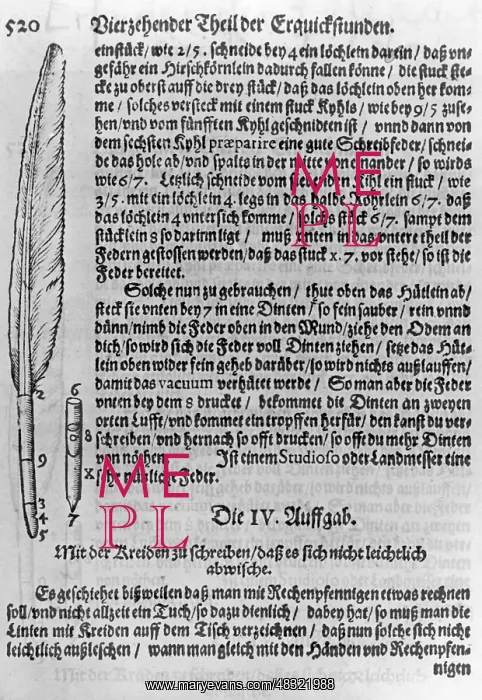 520 Vierzehender Theil der Erquickstunden.
einstück/ wie 2/5. schneide bey 4 ein löchlein darein / daß vn-
gefähr ein Hirschkörnlein dadurch fallen könne / die stuck ste-
cke zu oberst auff die drey stück/ daß das löchlein oben her kom-
me / solches versteck mit einem stuck Kyhls / wie bey 9/5 zuse-
hen/ vnd vom fünfften Kyhl geschnidten ist / vnnd dann von
dem sechsten Kyhl præparire eine gute Schreibfeder/ schnei-
de das hole ab/ vnd spalts in der mitte von einander / so wirds
wie 6/7. Letzlich schneide vom Kihl ein stuck / wie
3/5. mit ein löchlein 4. legs in das halbe Röhrlein 6/7. daß
das löchlein 4 vntersich komme / solchs stück 6/7. sampt dem
stücklein 8 so darinn ligt / muß vnten in das vntere theil der
Federn gestossen werden/ daß das stuck x. 7. vor stehe/ so ist die
Feder bereitet.
Solche nun zu gebrauchen / thue oben das Hütlein ab/
steck sie vnten bey 7 in eine Dinten / so fein sauber / rein vnnd
dünn/ nimb die Feder oben in den Mund/ ziehe den Odem an
dich/ so wird sich die Feder voll Dinten ziehen / setze das Hüt-
lein oben wider fein geheb darüber/ so wird nichts außlauffen/
damit das vacuum verhütet werde / So man aber die Feder
vnten bey dem 8 drucket / bekommet die Dinten an zweyen
orten Lufft/ vnd kommet ein tropffen herfür/ den kanst du ver-
schreiben/ vnd hernach so offt drucken/ so offt du mehr Dinten
von nöthen. Ist einem Studioso oder Landmesser eine
sehr nützliche Feder.
2
6
8
9
x
3
4
5
7
Die IV. Auffgab.
Mit der Kreiden zu schreiben/ daß es sich nicht leichtlich
abwische.
Es geschiehet bißweilen daß man mit Rechenpfennigen etwas rechnen
soll/ vnd nicht allzeit ein Tuch/ so dazu dienlich / dabey hat/ so muß man die
Linien mit Kreiden auff dem Tisch verzeichnen / daß nun solche sich nicht
leichtlich außleschen / wann man gleich mit den Händen vnd Rechenpfen-
nigen
ME
PL
ME
PL
www.maryevans.com/48321988